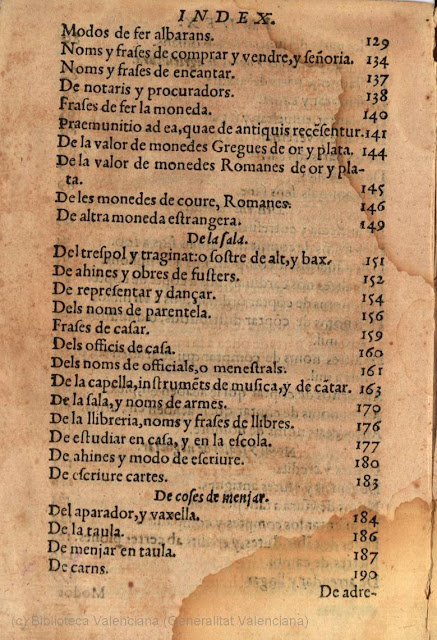 INDEX.
Modos de fer albarans. 129
Noms y frases de comprar y vendre, y señoria. 134
Noms y frases de encantar. 137
De notaris y procuradors. 138
Frases de fer la moneda. 140
Praemunitio ad ea, quae de antiquis recēsentur. 141
De la valor de monedes Gregues de or y plata. 144
De la valor de monedes Romanes de or y pla-
ta. 145
De les monedes de coure, Romanes. 146
De altra moneda estrangera. 149
De la sala.
Del trespol y traginat: o sostre de alt, y bax. 151
De ahines y obres de fusters. 152
De representar y dançar. 154
Dels noms de parentela. 156
Frases de casar. 159
Dels officis de casa. 160
Dels noms de officials, o menestrals. 161
De la capella, instrumēts de musica, y de cātar. 163
De la sala, y noms de armes. 170
De la llibreria, noms y frases de llibres. 176
De estudiar en casa, y en la escola. 177
De ahines y modo de escriure. 180
De escriure cartes. 183
De coses de menjar.
Del aparador, y vaxella. 184
De la taula. 186
De menjar en taula. 187
De carns. 190
De adre-
(c) Biblioteca Valenciana (Generalitat Valenciana)